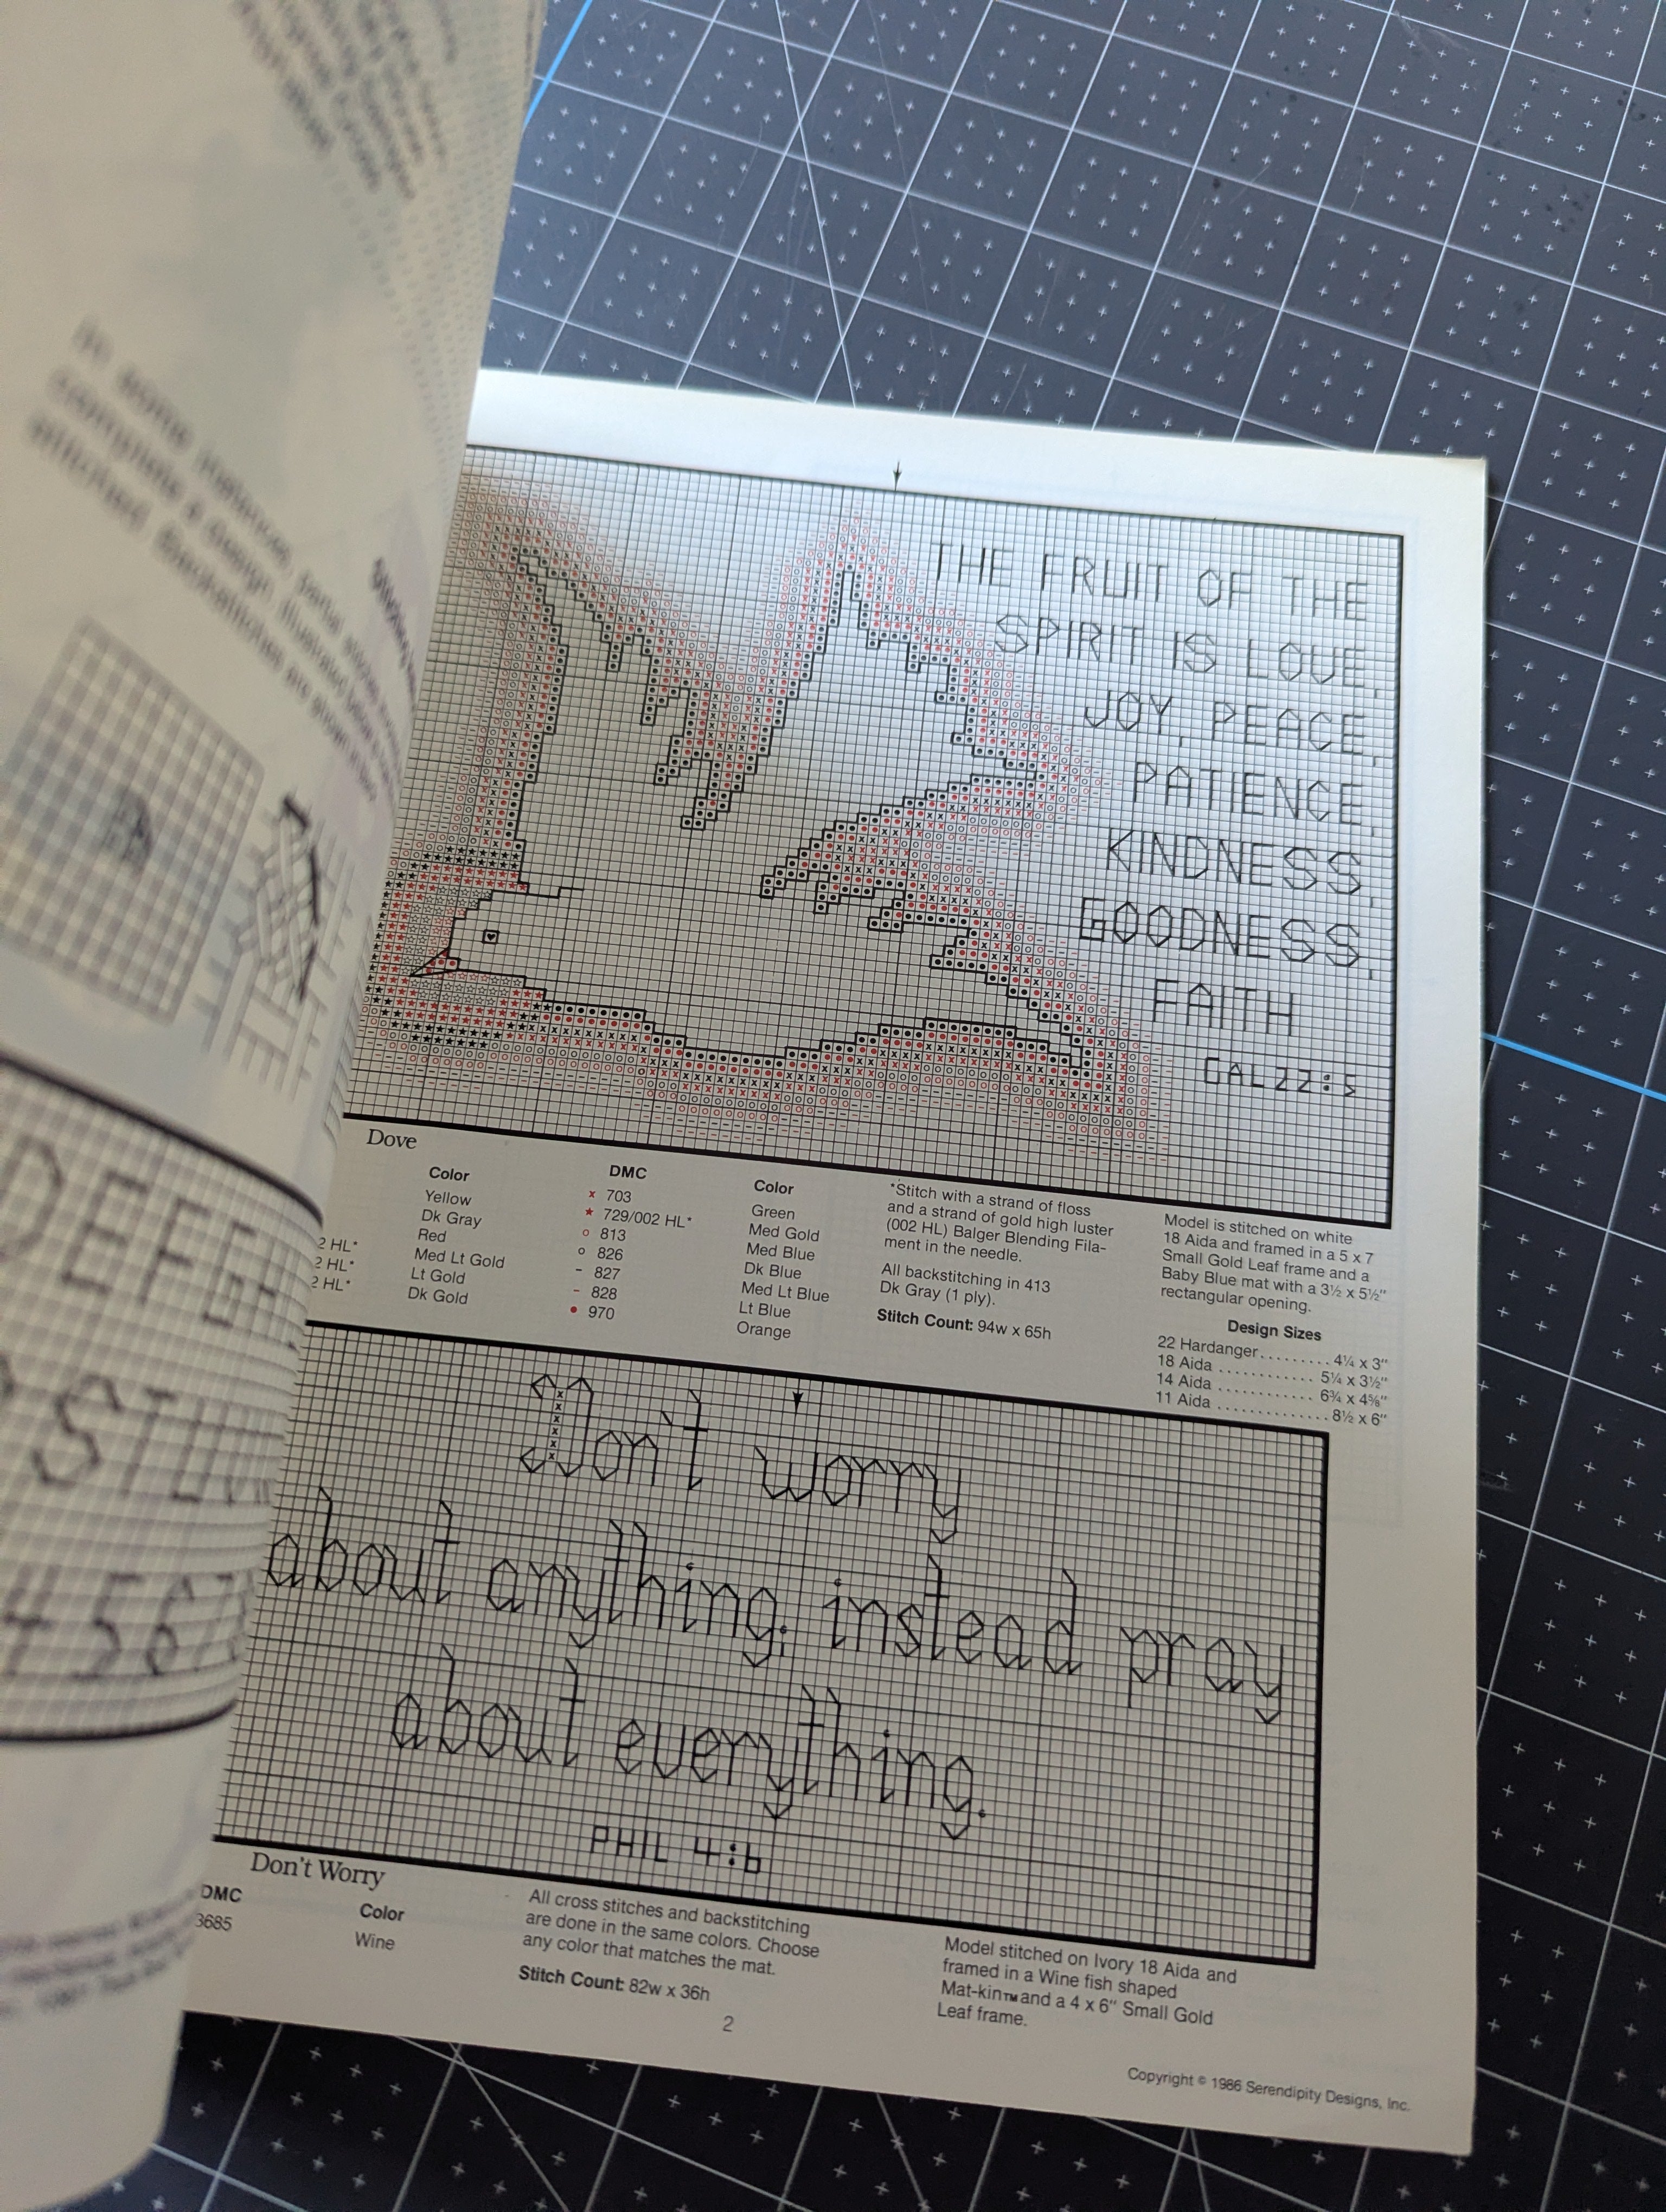 In some instances,
complete a design
THE FRUIT OF THE
SPIRIT IS LOVE,
JOY, PEACE,
PATIENCE,
KINDNESS
GOODNESS,
FAITH
GAL 22:5
Dove
Color
Yellow
Dk Gray
Red
2 HL* Med Lt Gold
2 HL* Lt Gold
2 HL* Dk Gold
DMC Color
x 703 Green
★ 729/002 HL* Med Gold
o 813 Med Blue
o 826 Dk Blue
- 827 Med Lt Blue
- 828 Lt Blue
● 970 Orange
*Stitch with a strand of floss
and a strand of gold high luster
(002 HL) Balger Blending Fila-
ment in the needle.
All backstitching in 413
Dk Gray (1 ply).
Stitch Count: 94w x 65h
Model is stitched on white
18 Aida and framed in a 5 x 7
Small Gold Leaf frame and a
Baby Blue mat with a 3½ x 5½"
rectangular opening.
Design Sizes
22 Hardanger......... 4¼ x 3"
18 Aida ............ 5¼ x 3½"
14 Aida ............ 6¾ x 4⅝"
11 Aida ............. 8½ x 6"
Don't worry
about anything; instead pray
about everything.
PHIL 4:6
Don't Worry
DMC Color
3685 Wine
All cross stitches and backstitching
are done in the same colors. Choose
any color that matches the mat.
Stitch Count: 82w x 36h
Model stitched on Ivory 18 Aida and
framed in a Wine fish shaped
Mat-kin™ and a 4 x 6" Small Gold
Leaf frame.
2
Copyright © 1986 Serendipity Designs, Inc.
DEFGH
STU
4567